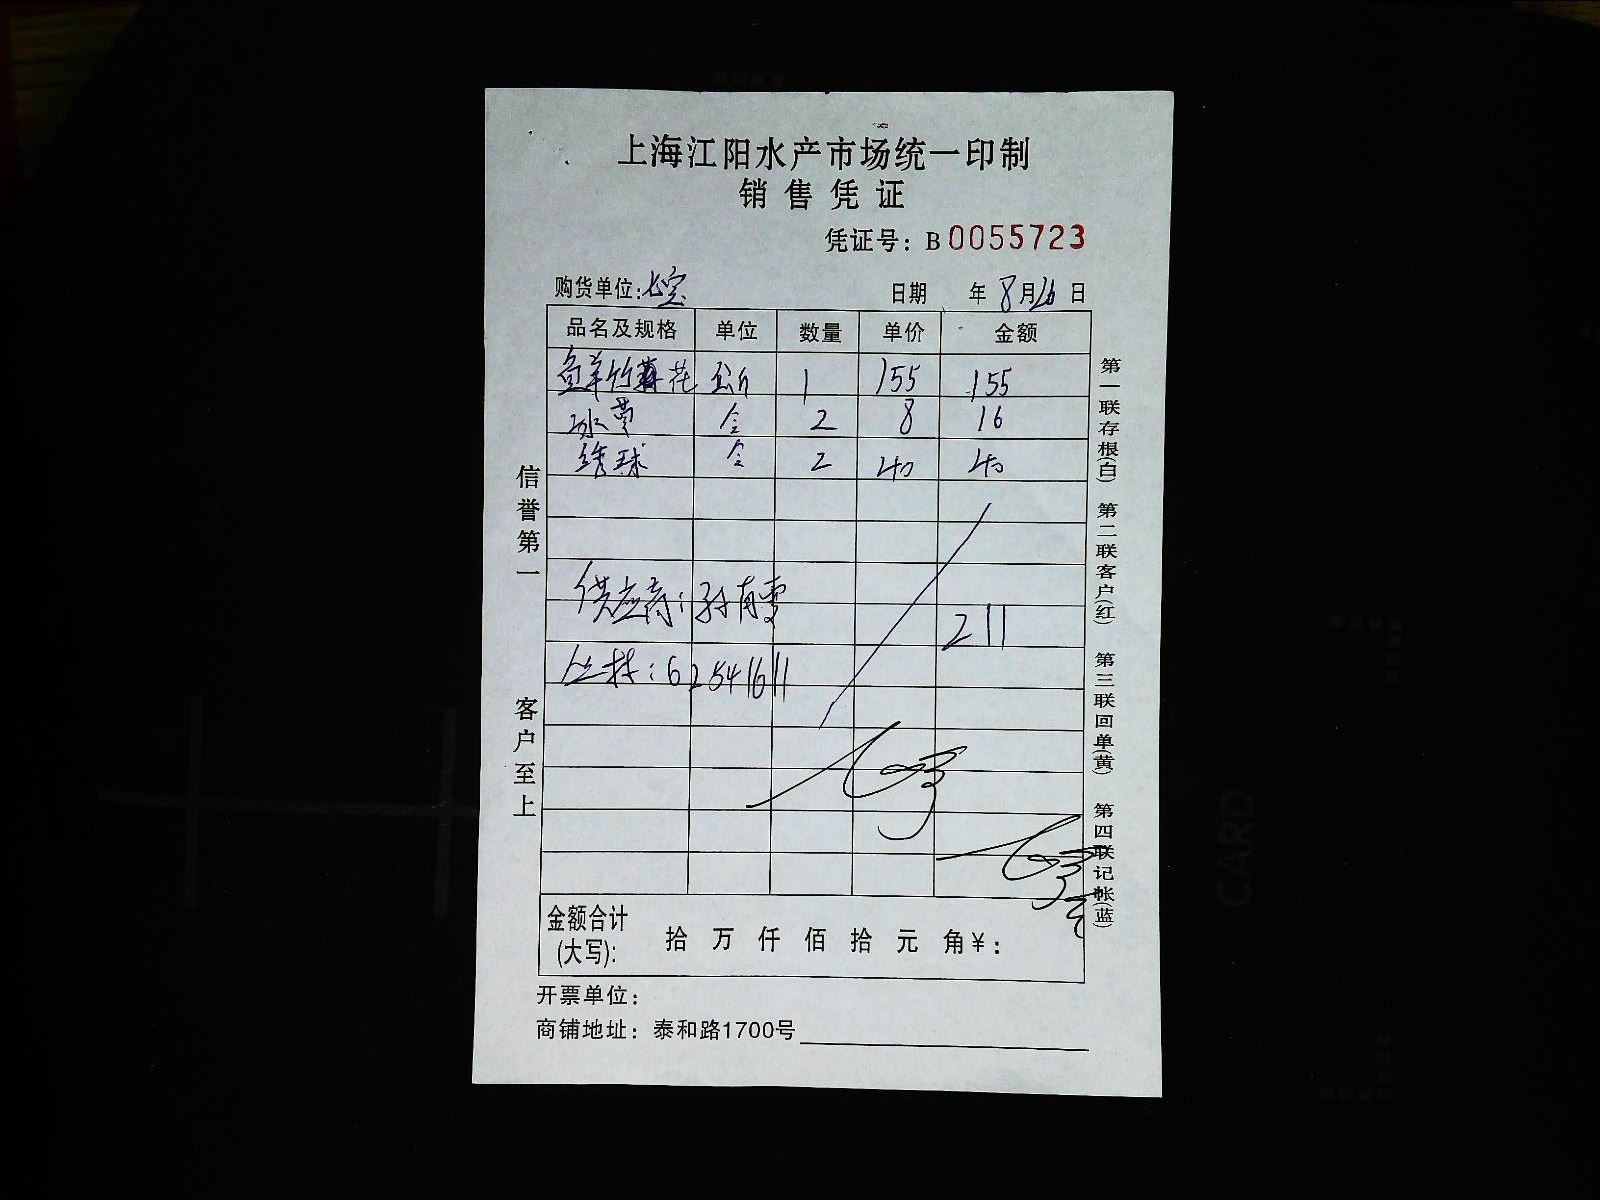 上海江阳水产市场统一印制
销售凭证
凭证号：B 0055723
购货单位： 日期 年 8 月 26 日
品名及规格 单位 数量 单价 金额
鲜竹荪花 公斤 1 155 155
冰草 仓 2 8 16
绣球 仓 2 40 40
供应商：孙有雪
丛林：62541611
211
信誉第一 客户至上
第一联存根(白) 第二联客户(红) 第三联回单(黄) 第四联记帐(蓝)
金额合计
(大写)： 拾 万 仟 佰 拾 元 角 ¥：
开票单位：
商铺地址：泰和路1700号
CARD